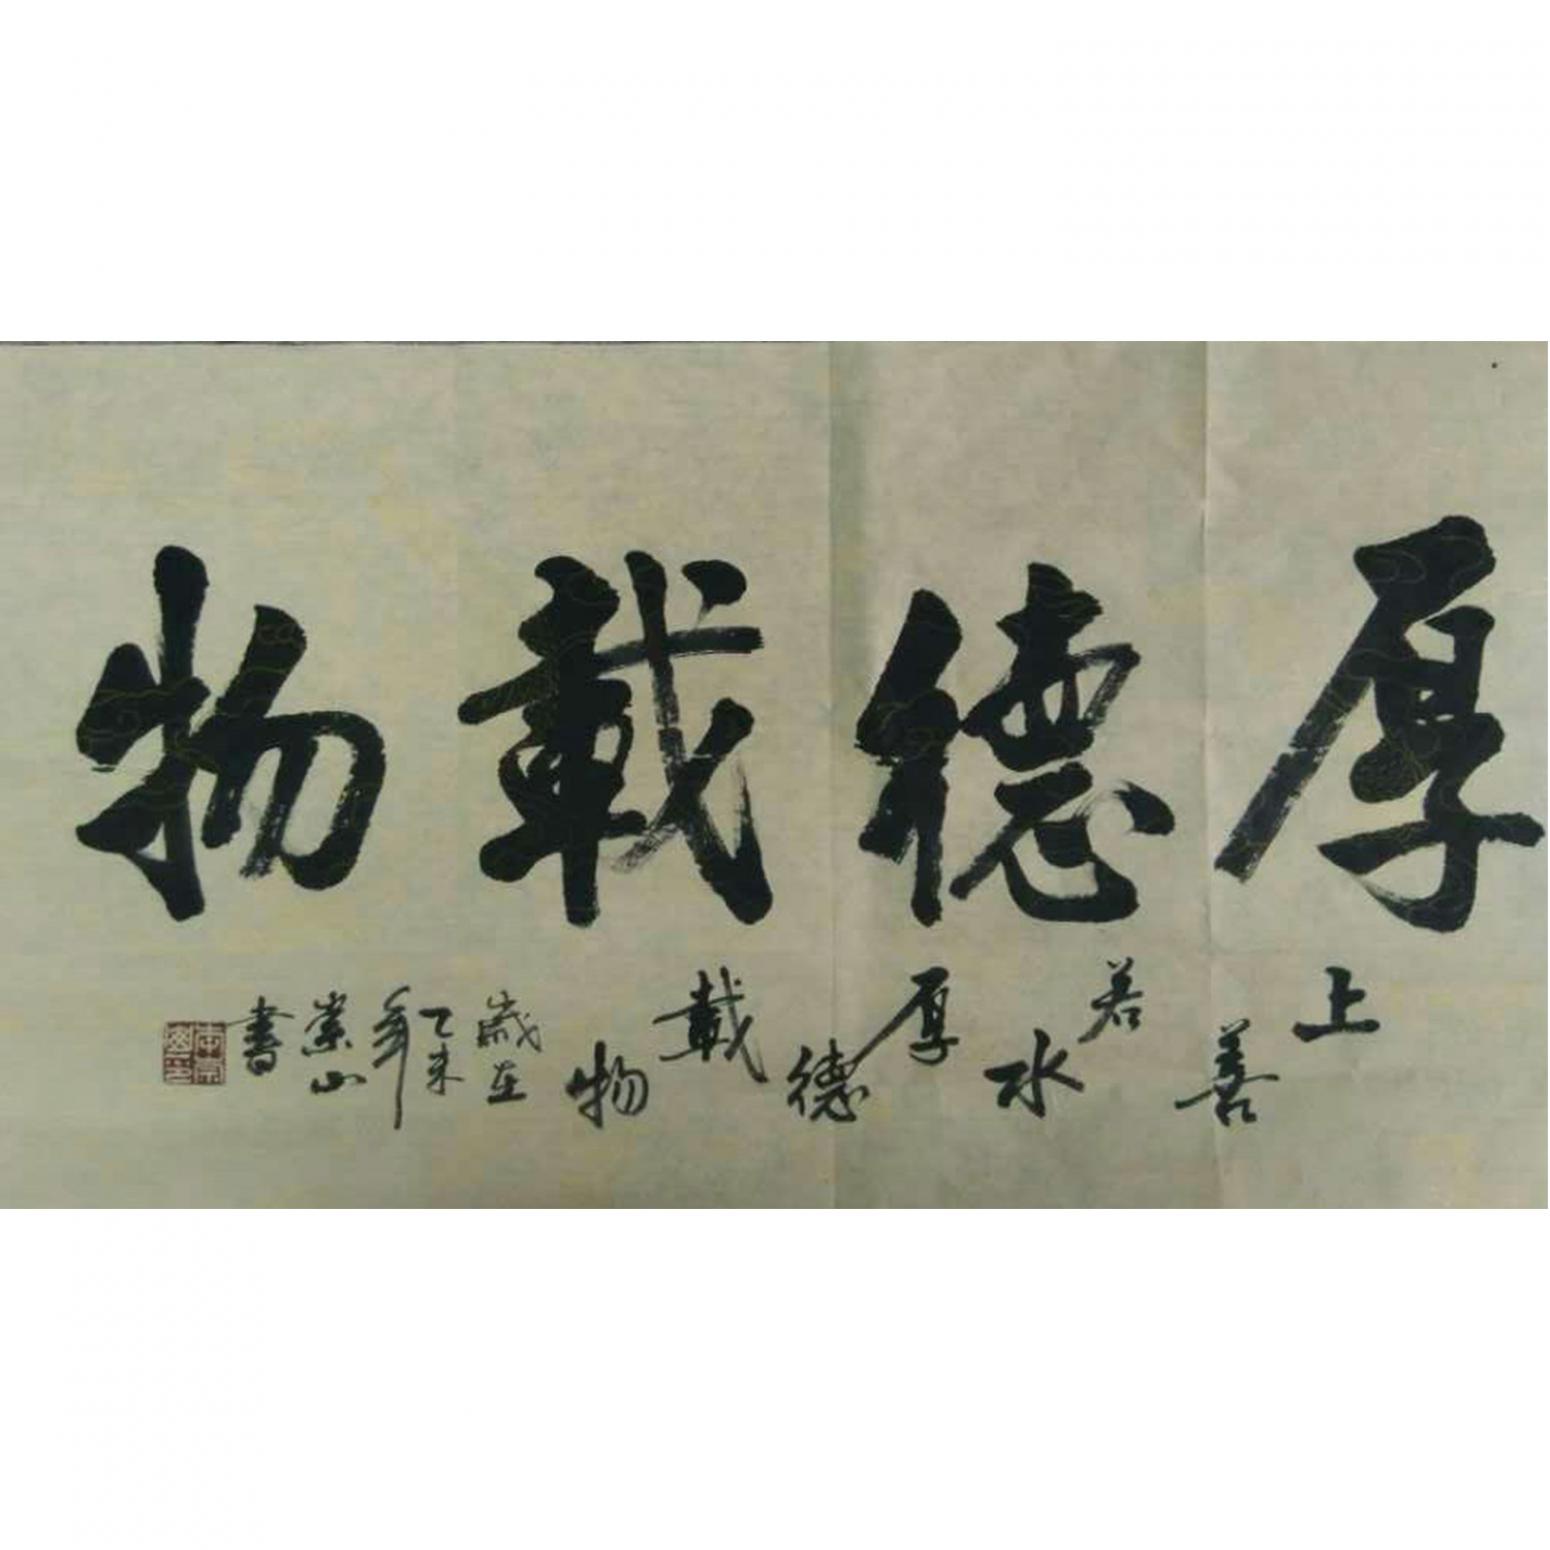 厚德載物
上善若水厚德載物
歲在乙未年崇山書